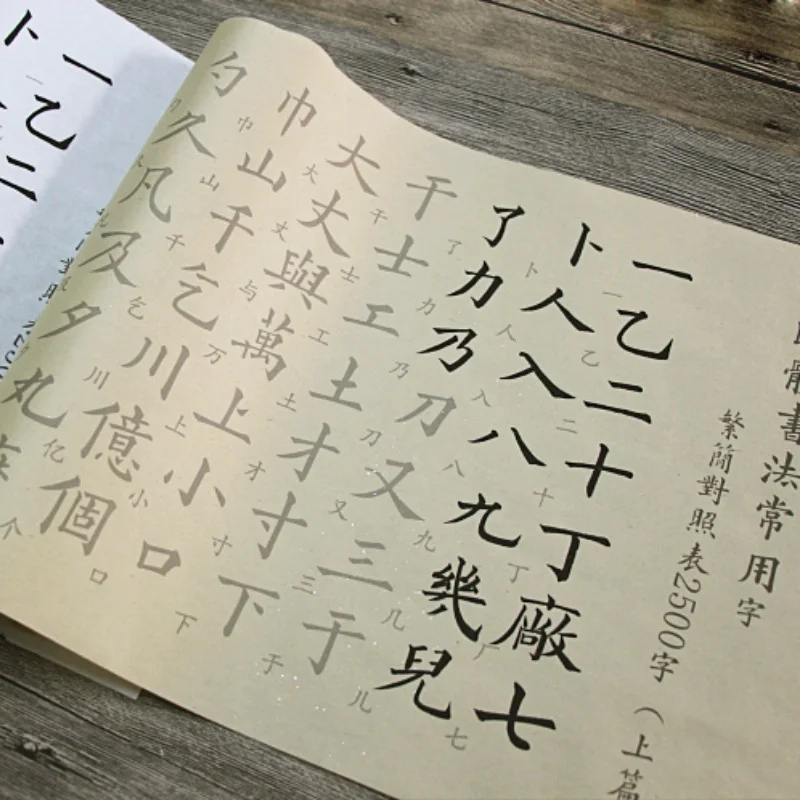 體書法常用字
繁簡對照表2500字（上篇
一乙二十丁廠七
一乙二十丁厂七
卜人入八九幾兒
卜人入八九几儿
了力乃刀又三于
了力乃刀又三于
干士工土才寸下
干士工土才寸下
大丈與萬上小口
大丈与万上小口
巾山千乞川億個
巾山千乞川亿个
勺久凡及夕丸
一乙二
卜
對照250